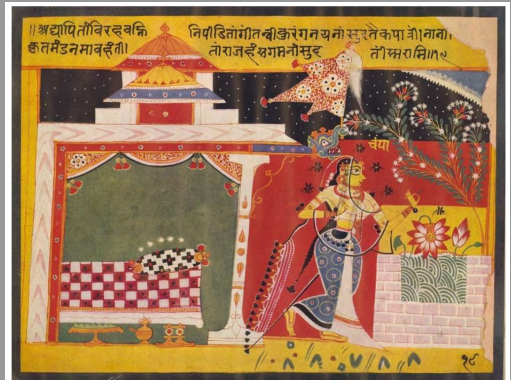 ॥अद्यापि तां विरहवह्नि निपीडितांगीं तन्वीं कुरंगनयनां सुरतैकपात्रीं। नाना।
कृतमंडनमावहंतीं। तां राजहंसगमनां सुदतीं स्मरामि॥१८
चंपा
१८